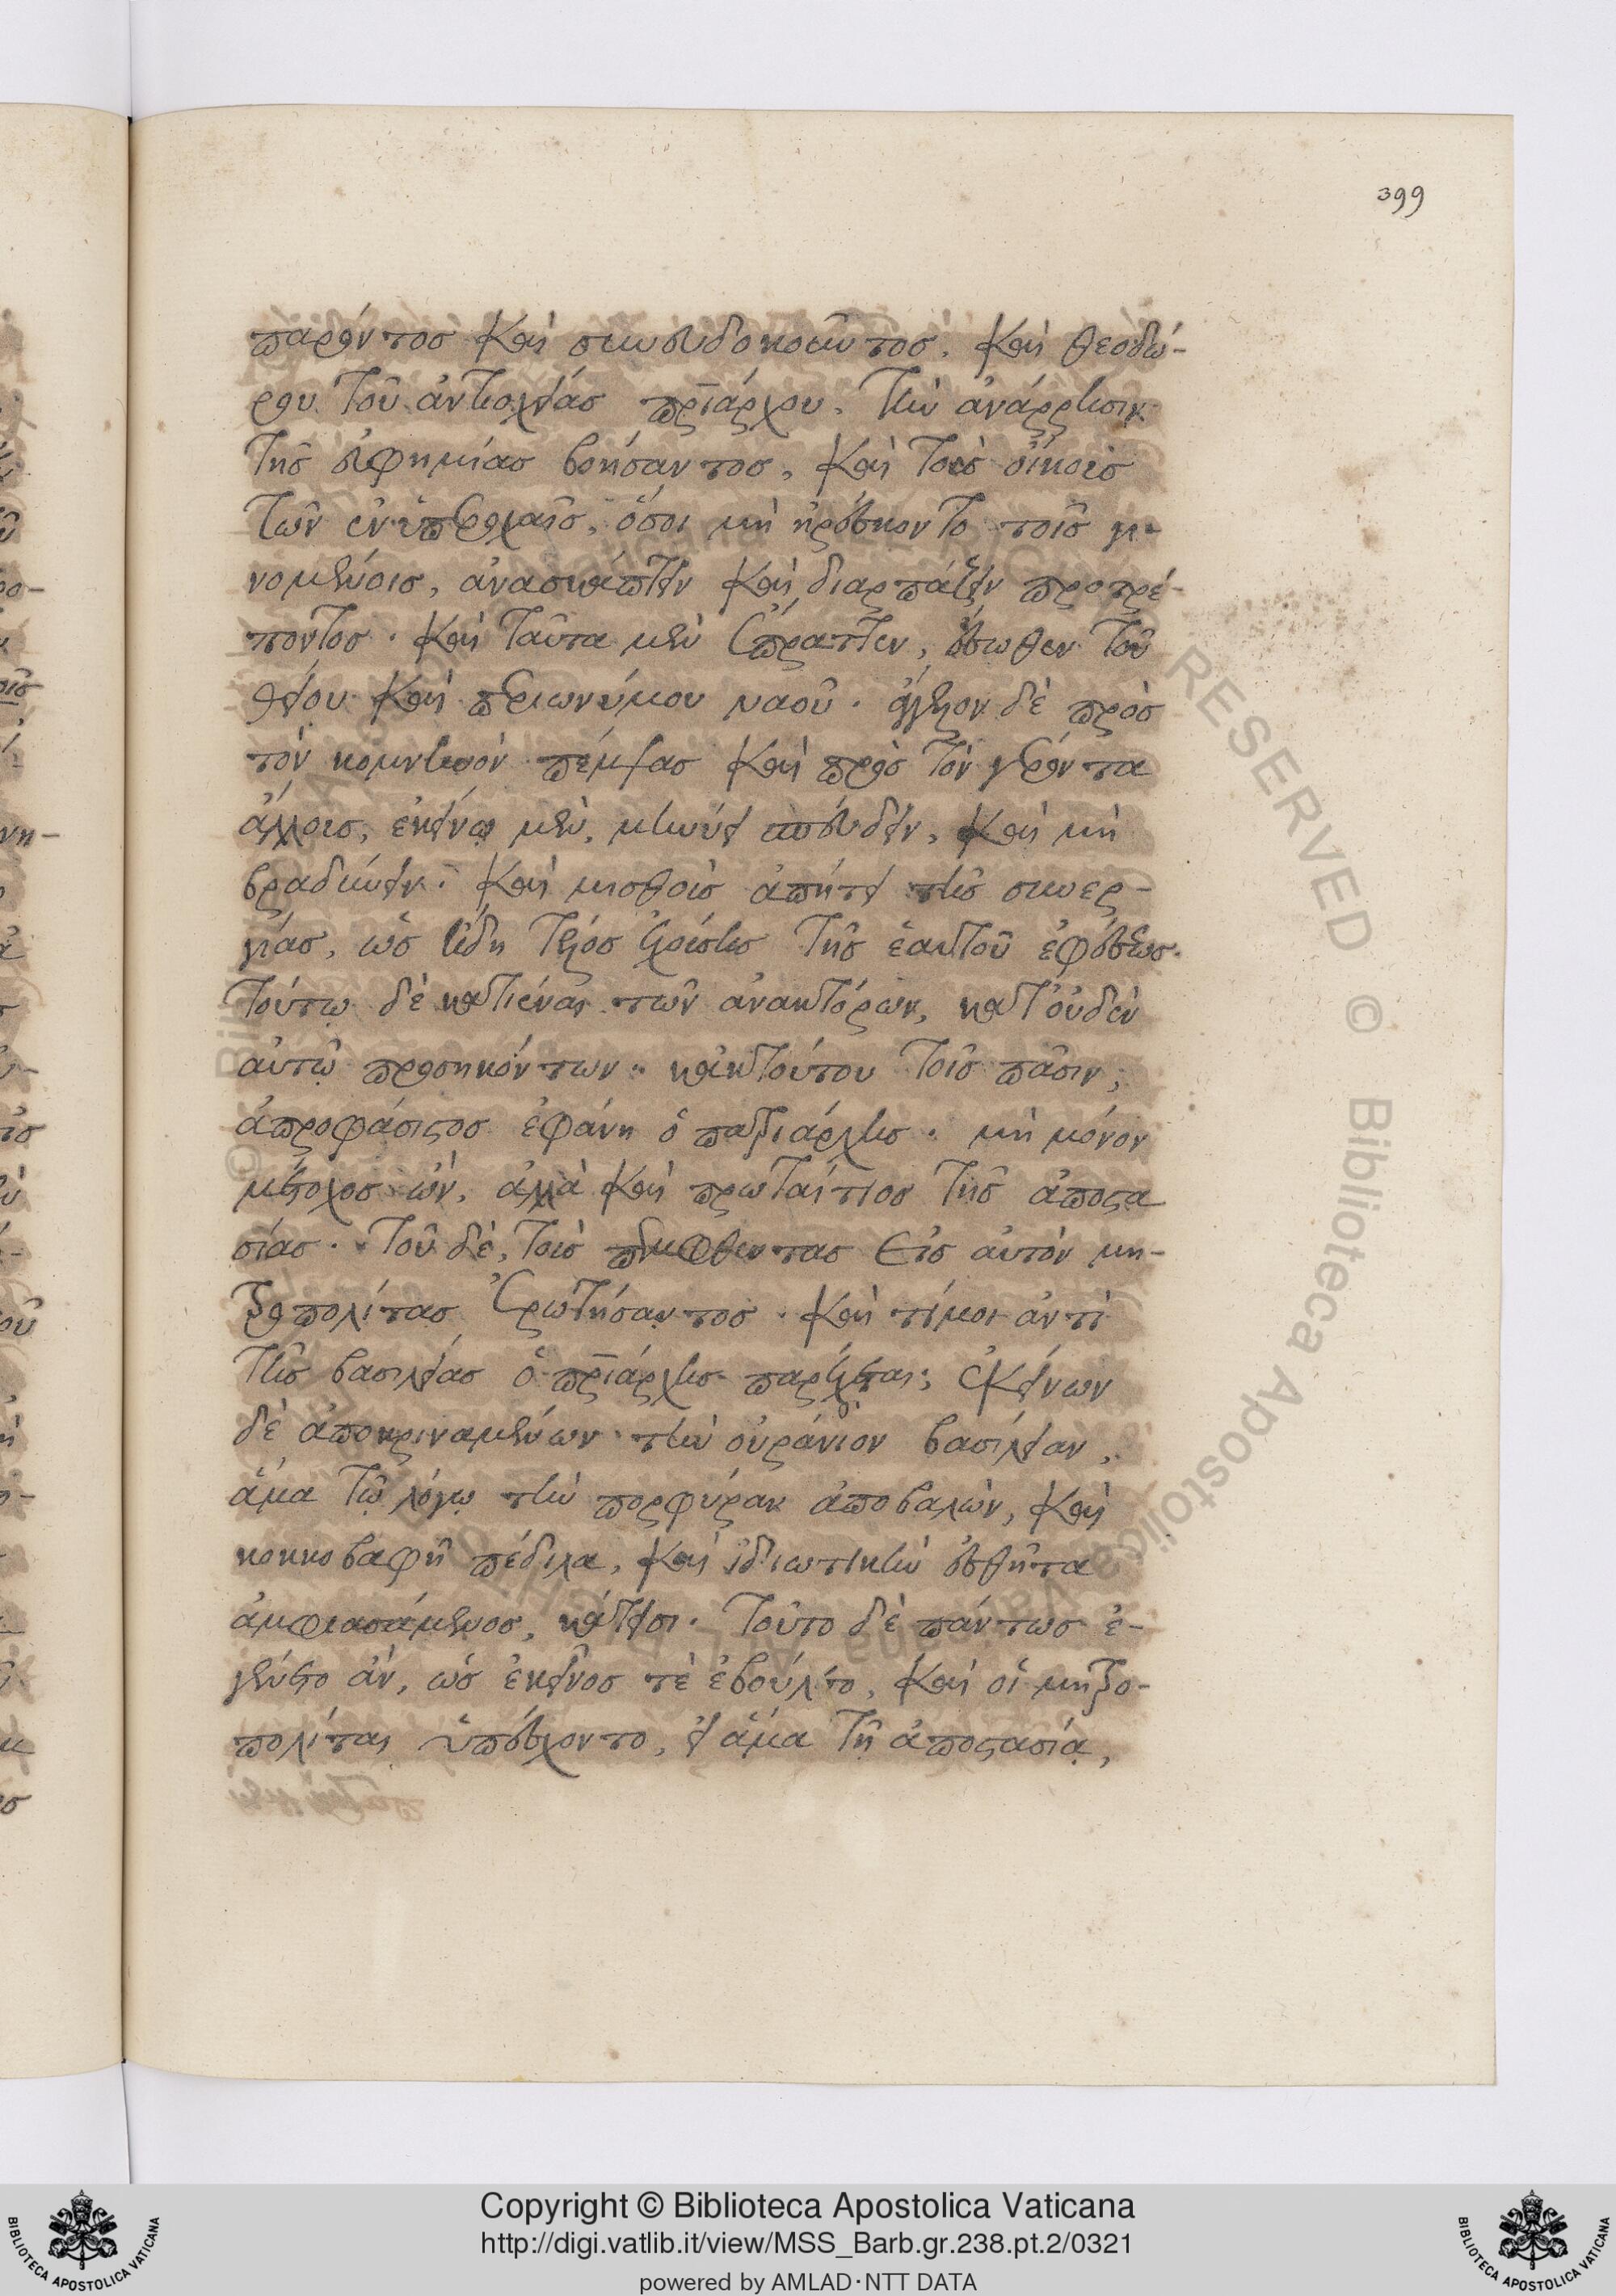 399
παρόντος καὶ συνευδοκοῦντος. καὶ θεοδώ-
ρου τοῦ ἀντιοχείας πριάρχου. τὴν ἀνάρρησιν
τῆς εὐφημίας βοήσαντος, καὶ τοὺς οἴκους
τῶν ἐν ὑπεροχαῖς, ὅσοι μὴ ἠρέσκοντο τοῖς γι-
νομένοις, ἀνασκάπτειν καὶ διαρπάζειν προτρέ-
ποντος. καὶ ταῦτα μὲν ἔπραττεν, ἔσωθεν τοῦ
θείου καὶ περιωνύμου ναοῦ. ἄγγελον δὲ πρὸς
τὸν κομνηνὸν πέμψας καὶ πρὸς τὸν γέροντα
ἄλλους, ἐκείνῳ μὲν, μηνύει σπεύδειν, καὶ μὴ
βραδύνειν. καὶ μισθοὺς ἀπῄτει τῆς συνερ-
γίας, ὡς ἤδη τέλος χρείσης τῆς ἑαυτοῦ ἐφέσεως.
τούτῳ δὲ κατιέναι τῶν ἀνακτόρων, κατ' οὐδὲν
αὐτῷ προσηκόντων. κἀκ τούτου τοῖς πᾶσιν,
ἀπροφάσιστος ἐφάνη ὁ πατριάρχης. μὴ μόνον
μέτοχος ὢν, ἀλλὰ καὶ πρωταίτιος τῆς ἀποστα
σίας. τοῦ δὲ, τοὺς πεμφθεντας εἰς αὐτὸν μη-
τροπολίτας ἐρωτήσαντος. καὶ τί μοι ἀντὶ
τῆς βασιλείας ὁ πριάρχης παρέχεται; ἐκείνων
δὲ ἀποκριναμένων τὴν οὐράνιον βασιλείαν,
ἅμα τῷ λόγῳ τὴν πορφύραν ἀποβαλὼν, καὶ
κοκκοβαφῆ πέδιλα, καὶ ἰδιωτικὴν ἐσθῆτα
ἀμφιασάμενος, κάτεισι. τοῦτο δὲ πάντως ἐ-
γένετο ἂν, ὡς ἐκεῖνος τὲ ἐβούλετο, καὶ οἱ μητρο-
πολίται ὑπέσχοντο, εἰ ἅμα τῇ ἀποστασίᾳ,
Copyright © Biblioteca Apostolica Vaticana
http://digi.vatlib.it/view/MSS_Barb.gr.238.pt.2/0321
powered by AMLAD·NTT DATA